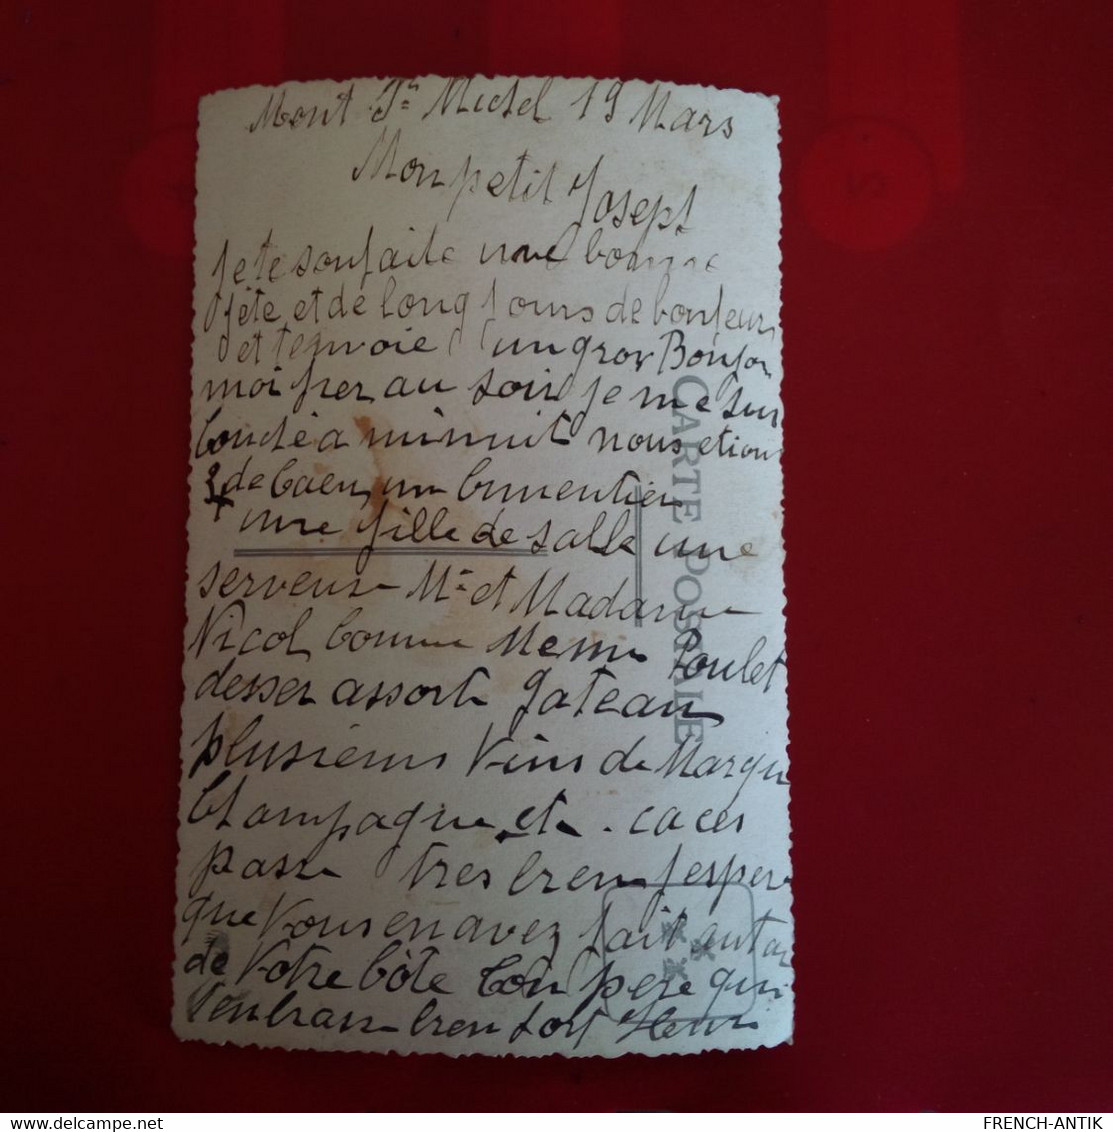 Mont St Michel 19 Mars
Mon petit Joseph
je te souhaite une bonne
fête et de long jours de bonheur
et tenvoie un gros Bonjou
moi hier au soir je me suis
couché a minuit nous etions
de Caen, un
une fille de salle une
serveuse Mr et Madame
Nicol comme Menu Poulet
desser assorti gateau
plusieurs Vins de Marque
Champagne etc. ca ces
passe tres bien jespere
que Vous en avez fait autan
de Votre côte ton pere qui
tembrasse bien fort Henri
CARTE POSTALE
FRENCH-ANTIK